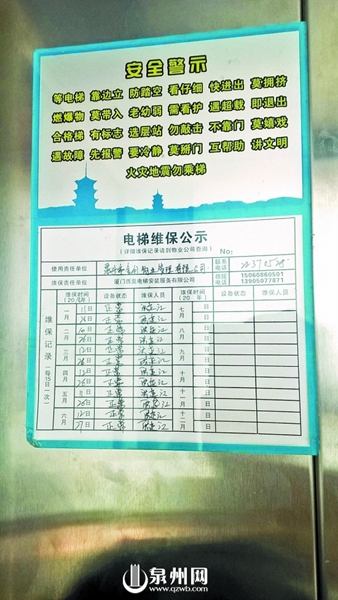 安全警示
等电梯 靠边立 防踏空 看仔细 快进出 莫拥挤
燃爆物 莫带入 老幼弱 需看护 遇超载 即退出
合格梯 有标志 选层站 勿敲击 不靠门 莫嬉戏
遇故障 先报警 要冷静 莫掰门 互帮助 讲文明
火灾地震勿乘梯
电梯维保公示
(详细维保记录请到物业公司查询) No:
使用责任单位 物业管理有限公司 联系电话 22370529
维保责任单位 电梯安装服务有限公司 15060860501
13905077871
维保时间(20 年) 设备状态 维保人员 维保时间(20 年) 设备状态 维保人员
维保记录(每15日一次)
一月 11日 正常 七月 日
26日 正常 日
二月 日 正常 八月 日
日 正常 日
三月 日 正常 九月 日
日 正常 日
四月 日 正常 十月 日
日 正常 日
五月 11日 正常 十一月 日
26日 正常 日
六月 12日 正常 十二月 日
27日 正常 日
泉州网
www.qzwb.com